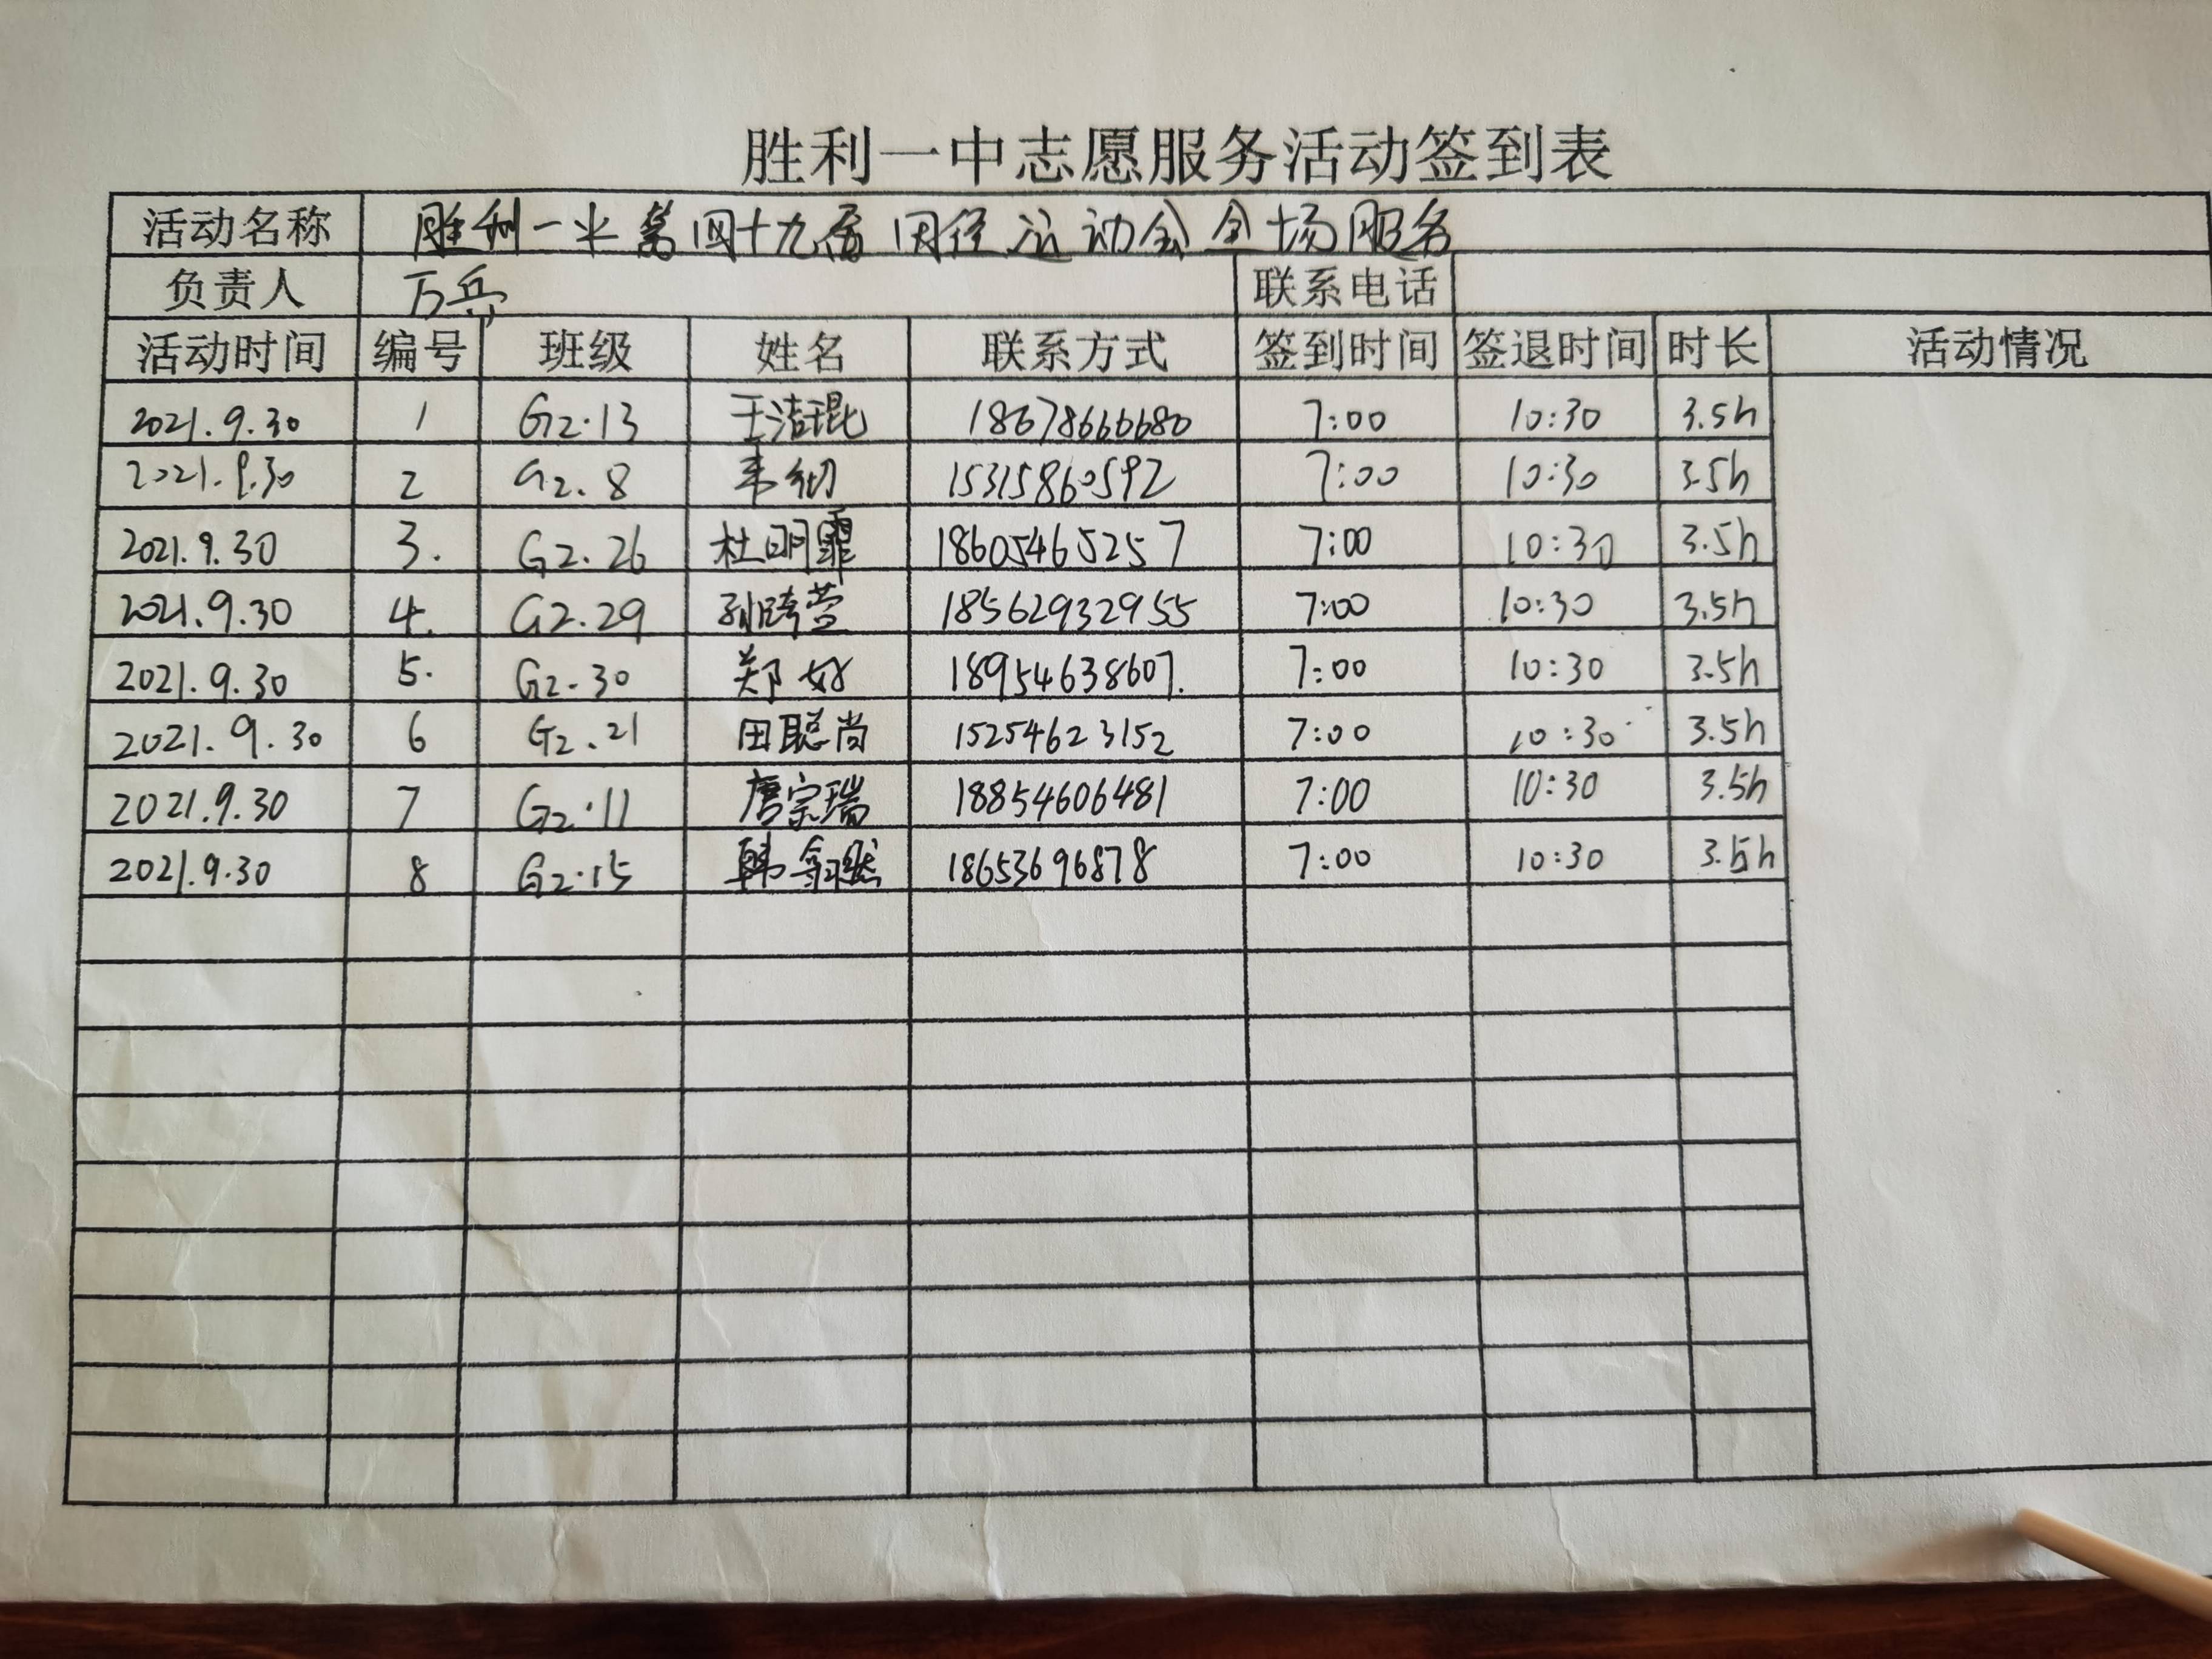 胜利一中志愿服务活动签到表
活动名称 胜利一中第四十九届田径运动会全场服务
负责人 万兵 联系电话
活动时间 编号 班级 姓名 联系方式 签到时间 签退时间 时长 活动情况
2021.9.30 1 G2.13 王洁琨 18678666680 7:00 10:30 3.5h
2021.9.30 2 G2.8 15315860592 7:00 10:30 3.5h
2021.9.30 3. G2.26 杜明霏 18605465257 7:00 10:30 3.5h
2021.9.30 4. G2.29 18562932955 7:00 10:30 3.5h
2021.9.30 5. G2.30 郑好 18954638607. 7:00 10:30 3.5h
2021.9.30 6 G2.21 田聪尚 15254623152 7:00 10:30 3.5h
2021.9.30 7 G2.11 唐宗瑞 18854606481 7:00 10:30 3.5h
2021.9.30 8 G2.15 18653696878 7:00 10:30 3.5h